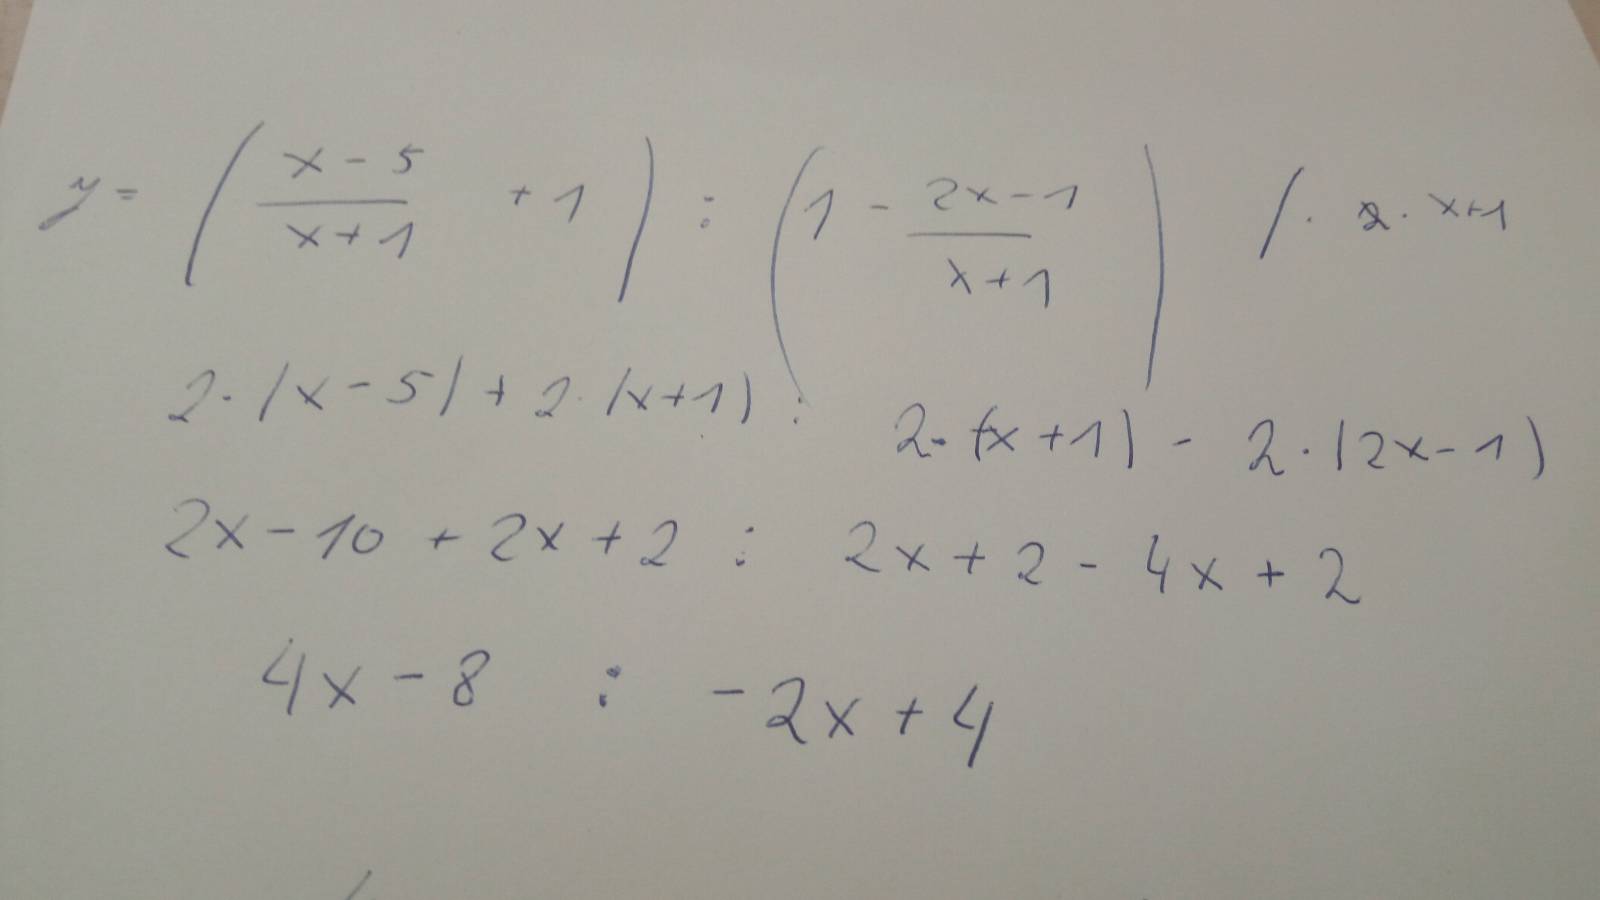 y = ( x - 5 / x + 1 + 1 ) : ( 1 - 2x - 1 / x + 1 ) / · 2 · x+1
2 · (x - 5) + 2 · (x + 1) : 2 · (x + 1) - 2 · (2x - 1)
2x - 10 + 2x + 2 : 2x + 2 - 4x + 2
4x - 8 : - 2x + 4